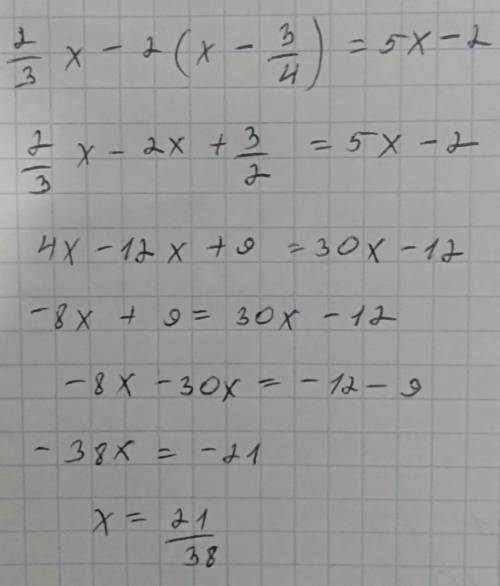 2/3 x - 2 (x - 3/4) = 5x - 2
2/3 x - 2x + 3/2 = 5x - 2
4x - 12x + 9 = 30x - 12
-8x + 9 = 30x - 12
-8x - 30x = -12 - 9
-38x = -21
x = 21/38